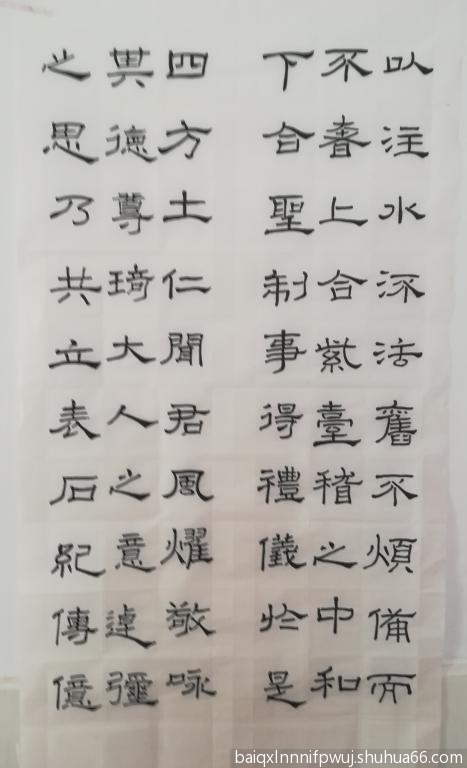 以注水流法舊不煩備而
不奢上合紫臺稽之中和
下合聖制事得禮儀於是
四方土仁聞君風耀敬咏
其德尊琦大人之意逴彌
之思乃共立表石紀傳億
baiqxlnnnifpwuj.shuhua66.com